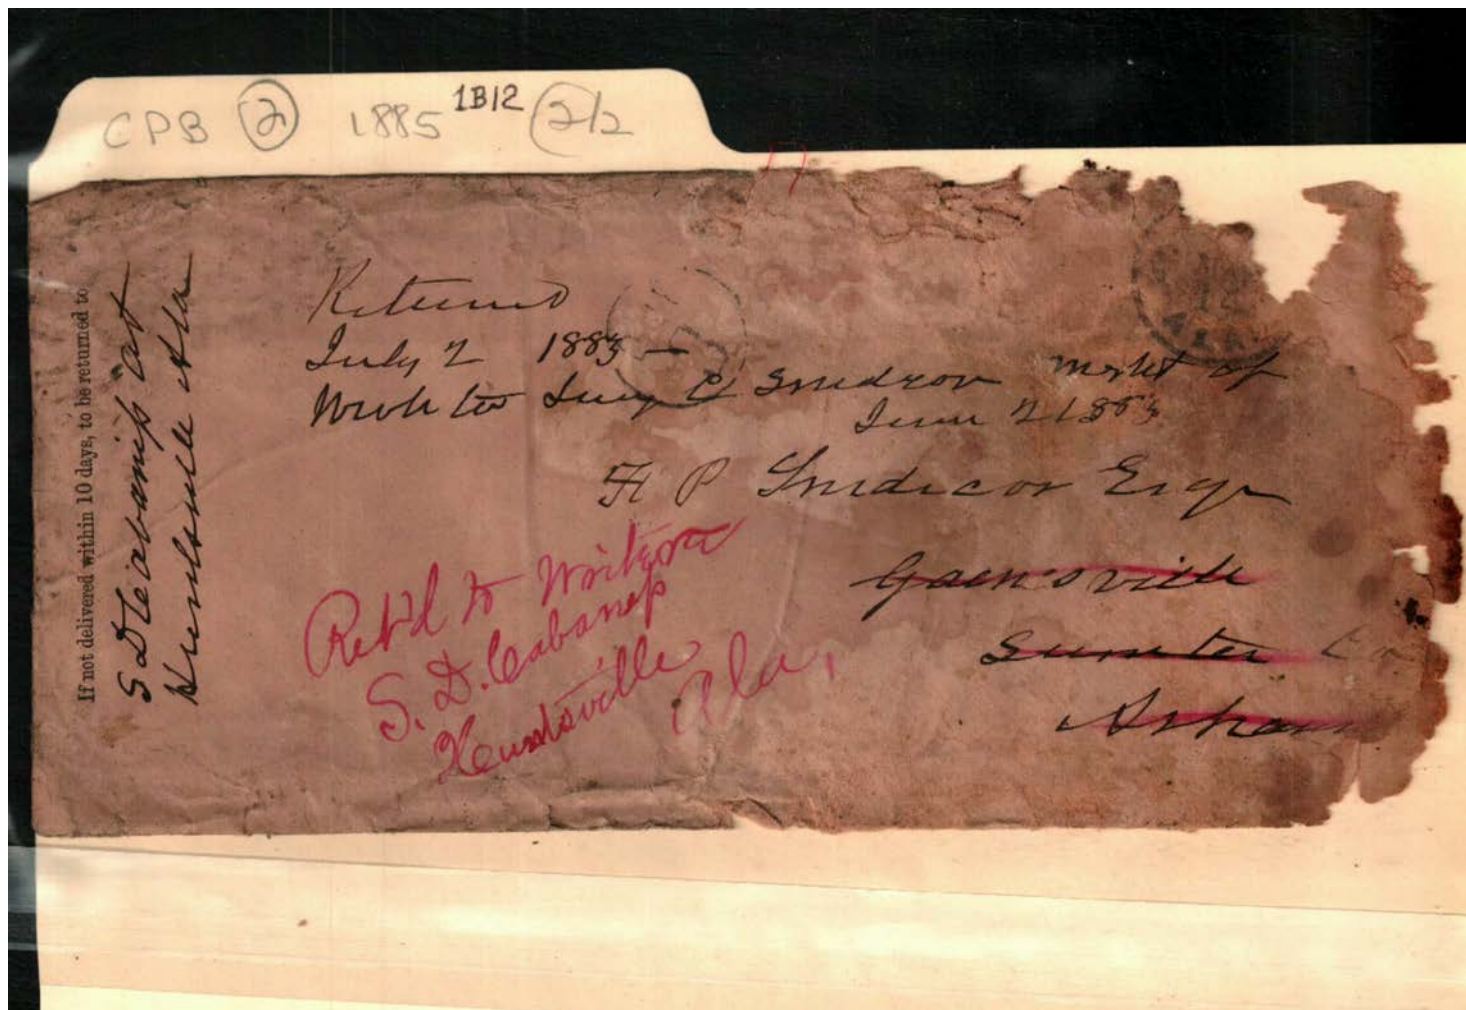 CPB 2 1885 1B12 2/2
If not delivered within 10 days, to be returned to
S D Cabaniss at
Huntsville Ala
Returned
July 2 1883 —
Wrote to Lucy C Snedicor
June 2 1883
F P Snedicor Esqr
Gainsville
Sumter Co
Arkan
Ret'd to Writer
S. D. Cabaness
Huntsville
Ala,